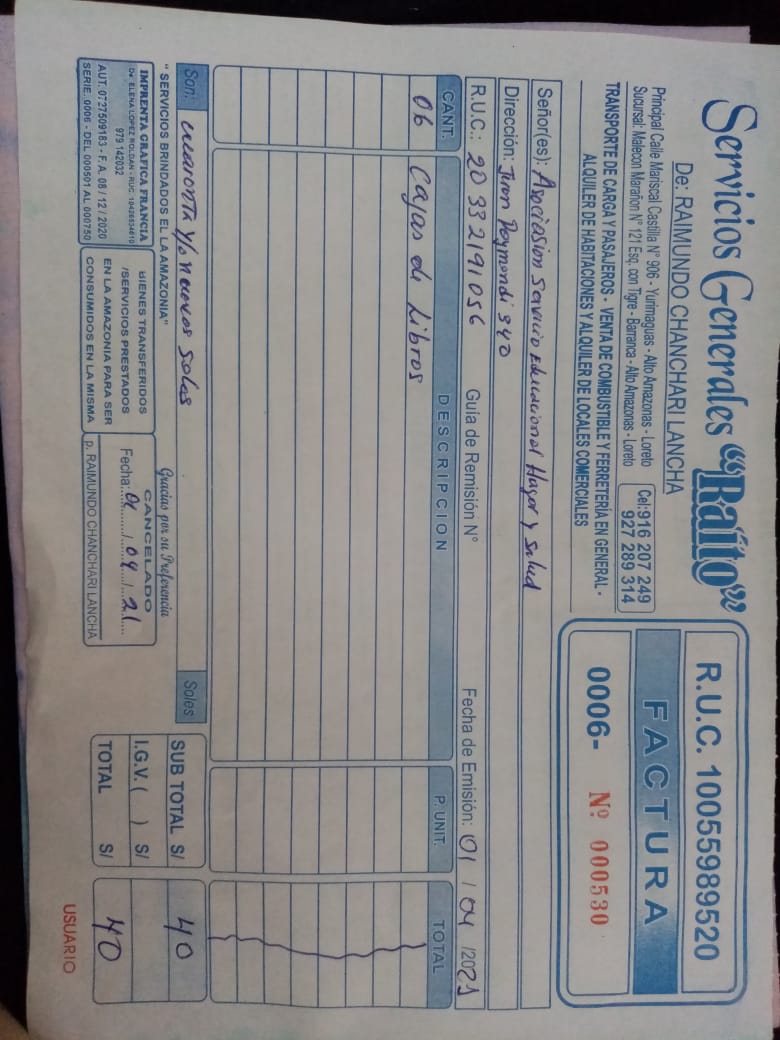 Servicios Generales "Raíto"
De: RAIMUNDO CHANCHARI LANCHA
Principal Calle Mariscal Castilla N° 906 - Yurimaguas - Alto Amazonas - Loreto
Sucursal: Malecon Marañon N° 121 Esq. con Tigre - Barranca - Alto Amazonas - Loreto
Cel:916 207 249
927 289 314
TRANSPORTE DE CARGA Y PASAJEROS - VENTA DE COMBUSTIBLE Y FERRETERÍA EN GENERAL -
ALQUILER DE HABITACIONES Y ALQUILER DE LOCALES COMERCIALES
R.U.C. 10055989520
FACTURA
0006- Nº 000530
Señor(es): Asociasion Servicio Educacional Hogar y Salud
Dirección: Juron Raymondi 340
R.U.C.: 20332191056 Guía de Remisión N° Fecha de Emisión: 01 / 04 /2021
CANT. DESCRIPCION P. UNIT. TOTAL
06 Cajas de Libros
Son: cuaronta y/o nuevos soles Soles
SUB TOTAL S/ 40
I.G.V. ( ) S/
TOTAL S/ 40
" SERVICIOS BRINDADOS EL LA AMAZONIA" Gracias por su Preferencia
IMPRENTA GRAFICA FRANCIA
De: ELENA LOPEZ ROLDAN - RUC: 10426534610
979 142032
AUT. 0727509183 - F. A. 08 / 12 / 2020
SERIE. 0006 - DEL 000501 AL 000750
BIENES TRANSFERIDOS
/SERVICIOS PRESTADOS
EN LA AMAZONIA PARA SER
CONSUMIDOS EN LA MISMA
CANCELADO
Fecha: 01 / 04 / 21
p. RAIMUNDO CHANCHARI LANCHA
USUARIO